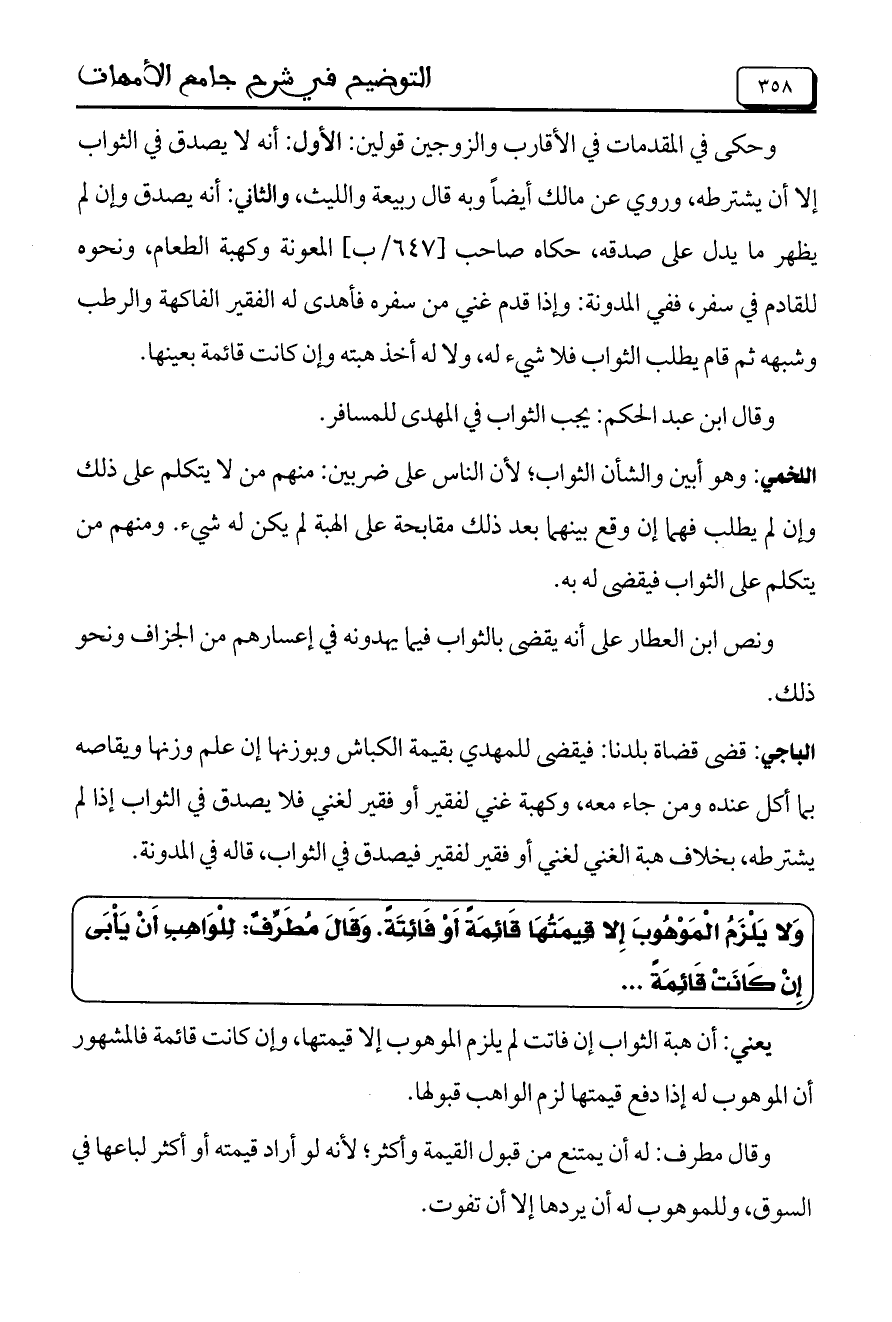 ٣٥٨
التوضيح في شرح جامع الأمهات
وحكى في المقدمات في الأقارب والزوجين قولين: الأول: أنه لا يصدق في الثواب
إلا أن يشترطه، وروي عن مالك أيضاً وبه قال ربيعة والليث، والثاني: أنه يصدق وإن لم
يظهر ما يدل على صدقه، حكاه صاحب [٦٤٧/ب] المعونة وكهبة الطعام، ونحوه
للقادم في سفر، ففي المدونة: وإذا قدم غني من سفره فأهدى له الفقير الفاكهة والرطب
وشبهه ثم قام يطلب الثواب فلا شيء له، ولا له أخذ هبته وإن كانت قائمة بعينها.
وقال ابن عبد الحكم: يجب الثواب في المهدى للمسافر.
اللخمي: وهو أبين والشأن الثواب؛ لأن الناس على ضربين: منهم من لا يتكلم على ذلك
وإن لم يطلب فهما إن وقع بينهما بعد ذلك مقابحة على الهبة لم يكن له شيء. ومنهم من
يتكلم على الثواب فيقضى له به.
ونص ابن العطار على أنه يقضى بالثواب فيما يهدونه في إعسارهم من الجزاف ونحو
ذلك.
الباجي: قضى قضاة بلدنا: فيقضى للمهدي بقيمة الكباش وبوزنها إن علم وزنها ويقاصه
بما أكل عنده ومن جاء معه، وكهبة غني لفقير أو فقير لغني فلا يصدق في الثواب إذا لم
يشترطه، بخلاف هبة الغني لغني أو فقير لفقير فيصدق في الثواب، قاله في المدونة.
وَلا يَلْزَمُ الْمَوْهُوبَ إِلا قِيمَتُهَا قَائِمَةً أَوْ فَائِتَةً. وَقَالَ مُطَرِّفٌ: لِلْوَاهِبِ أَنْ يَأْبَى
إِنْ كَانَتْ قَائِمَةً ...
يعني: أن هبة الثواب إن فاتت لم يلزم الموهوب إلا قيمتها، وإن كانت قائمة فالمشهور
أن الموهوب له إذا دفع قيمتها لزم الواهب قبولها.
وقال مطرف: له أن يمتنع من قبول القيمة وأكثر؛ لأنه لو أراد قيمته أو أكثر لباعها في
السوق، وللموهوب له أن يردها إلا أن تفوت.